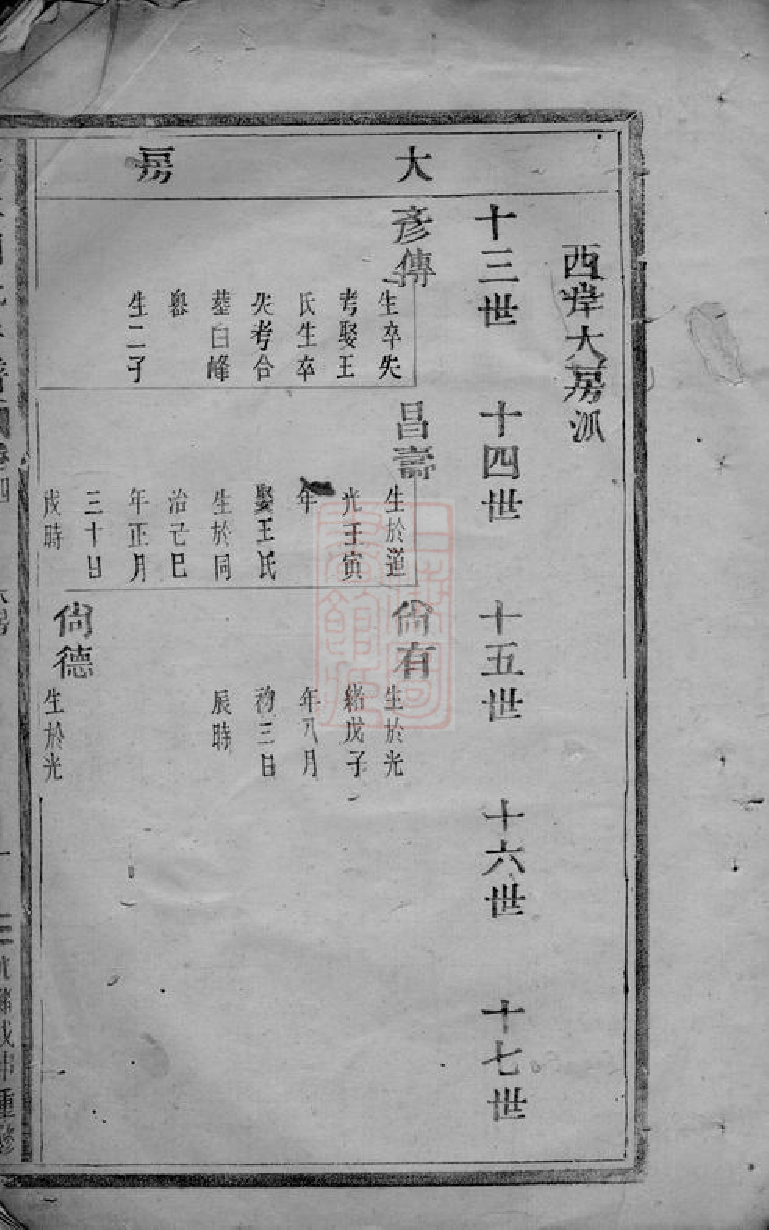 大房
西岸大房派
十三世 十四世 十五世 十六世 十七世
彥傳
生卒失
考娶王
氏生卒
失考合
墓白峰
生二子
昌壽
生於道
光壬寅
年
娶王氏
生於同
治己巳
年正月
三十日
戌時
尙有
生於光
緒戊子
年八月
初三日
辰時
尙德
生於光